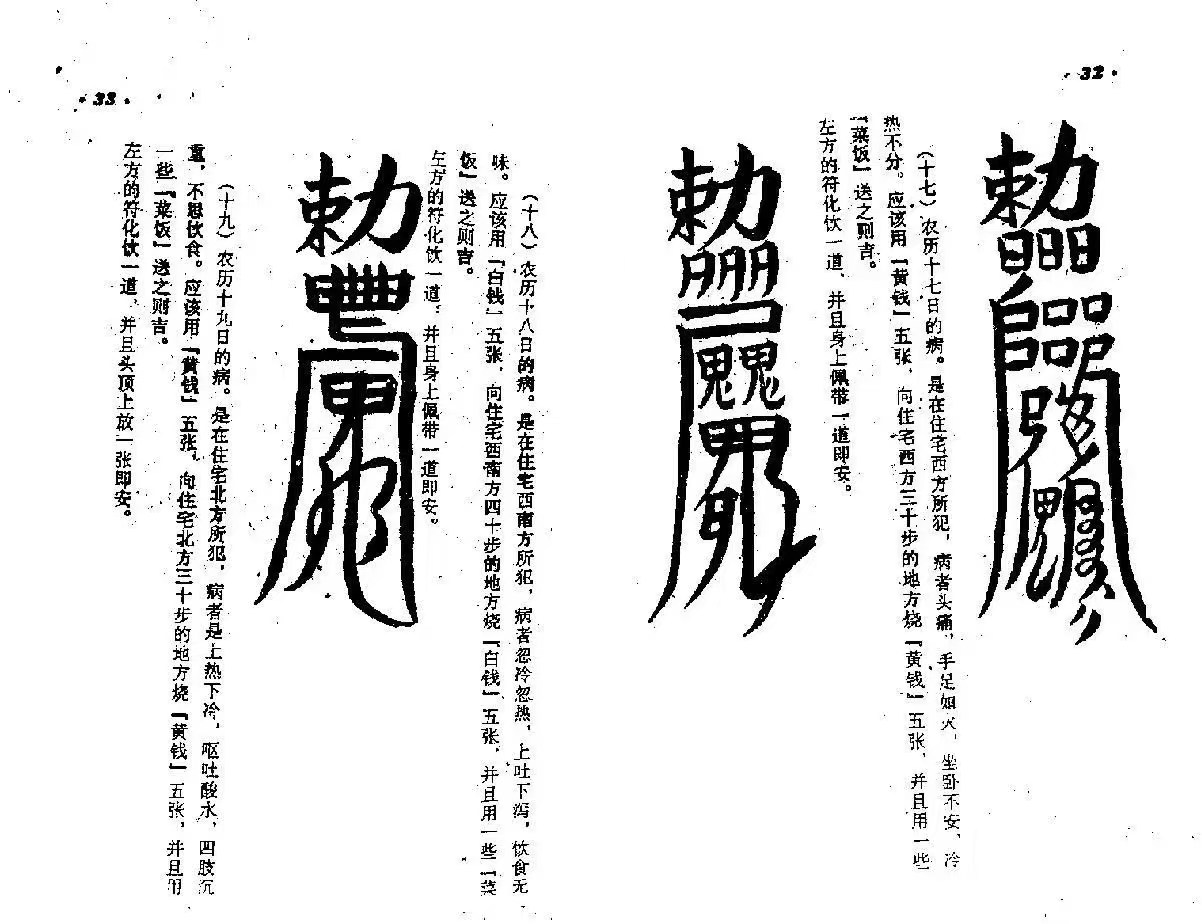 · 32 ·
勅
（十七）农历十七日的病。是在住宅西方所犯，病者头痛，手足如火，坐卧不安，冷
热不分。应该用「黄钱」五张，向住宅西方三十步的地方烧「黄钱」五张，并且用一些
「菜饭」送之则吉。
左方的符化饮一道，并且身上佩带一道即安。
勅
（十八）农历十八日的病。是在住宅西南方所犯，病者忽冷忽热，上吐下泻，饮食无
味。应该用「白钱」五张，向住宅西南方四十步的地方烧「白钱」五张，并且用一些「菜
饭」送之则吉。
左方的符化饮一道，并且身上佩带一道即安。
勅
（十九）农历十九日的病。是在住宅北方所犯，病者是上热下冷，呕吐酸水，四肢沉
重，不思饮食。应该用「黄钱」五张，向住宅北方三十步的地方烧「黄钱」五张，并且用
一些「菜饭」送之则吉。
左方的符化饮一道，并且头顶上放一张即安。
· 33 ·